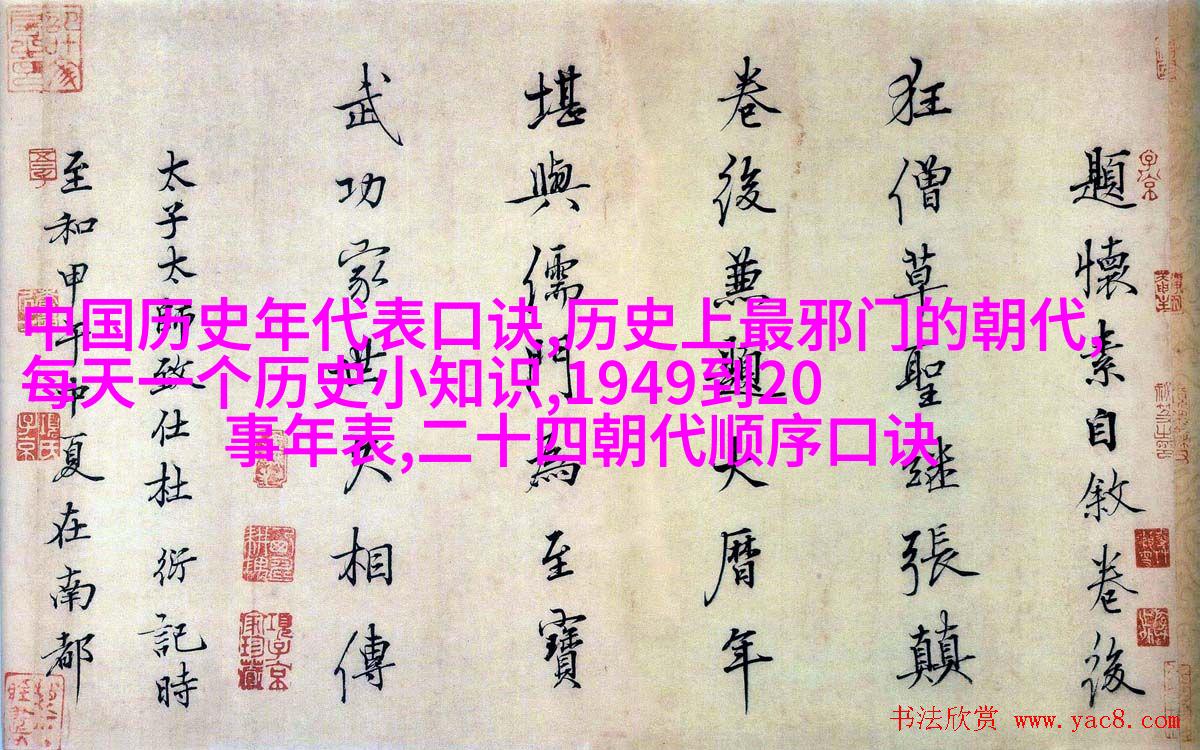 題懷素自敘卷後
狂僧草聖継張顛
卷後兼題大曆年
堪與儒門為至寶
武功家世久相傳
太子太師致仕杜衍記時
至和甲午中夏在南都
中国历史年代表口诀,历史上最邪门的朝代,
每天一个历史小知识,1949到20
事年表,二十四朝代顺序口诀
书法欣赏 www.yac8.com